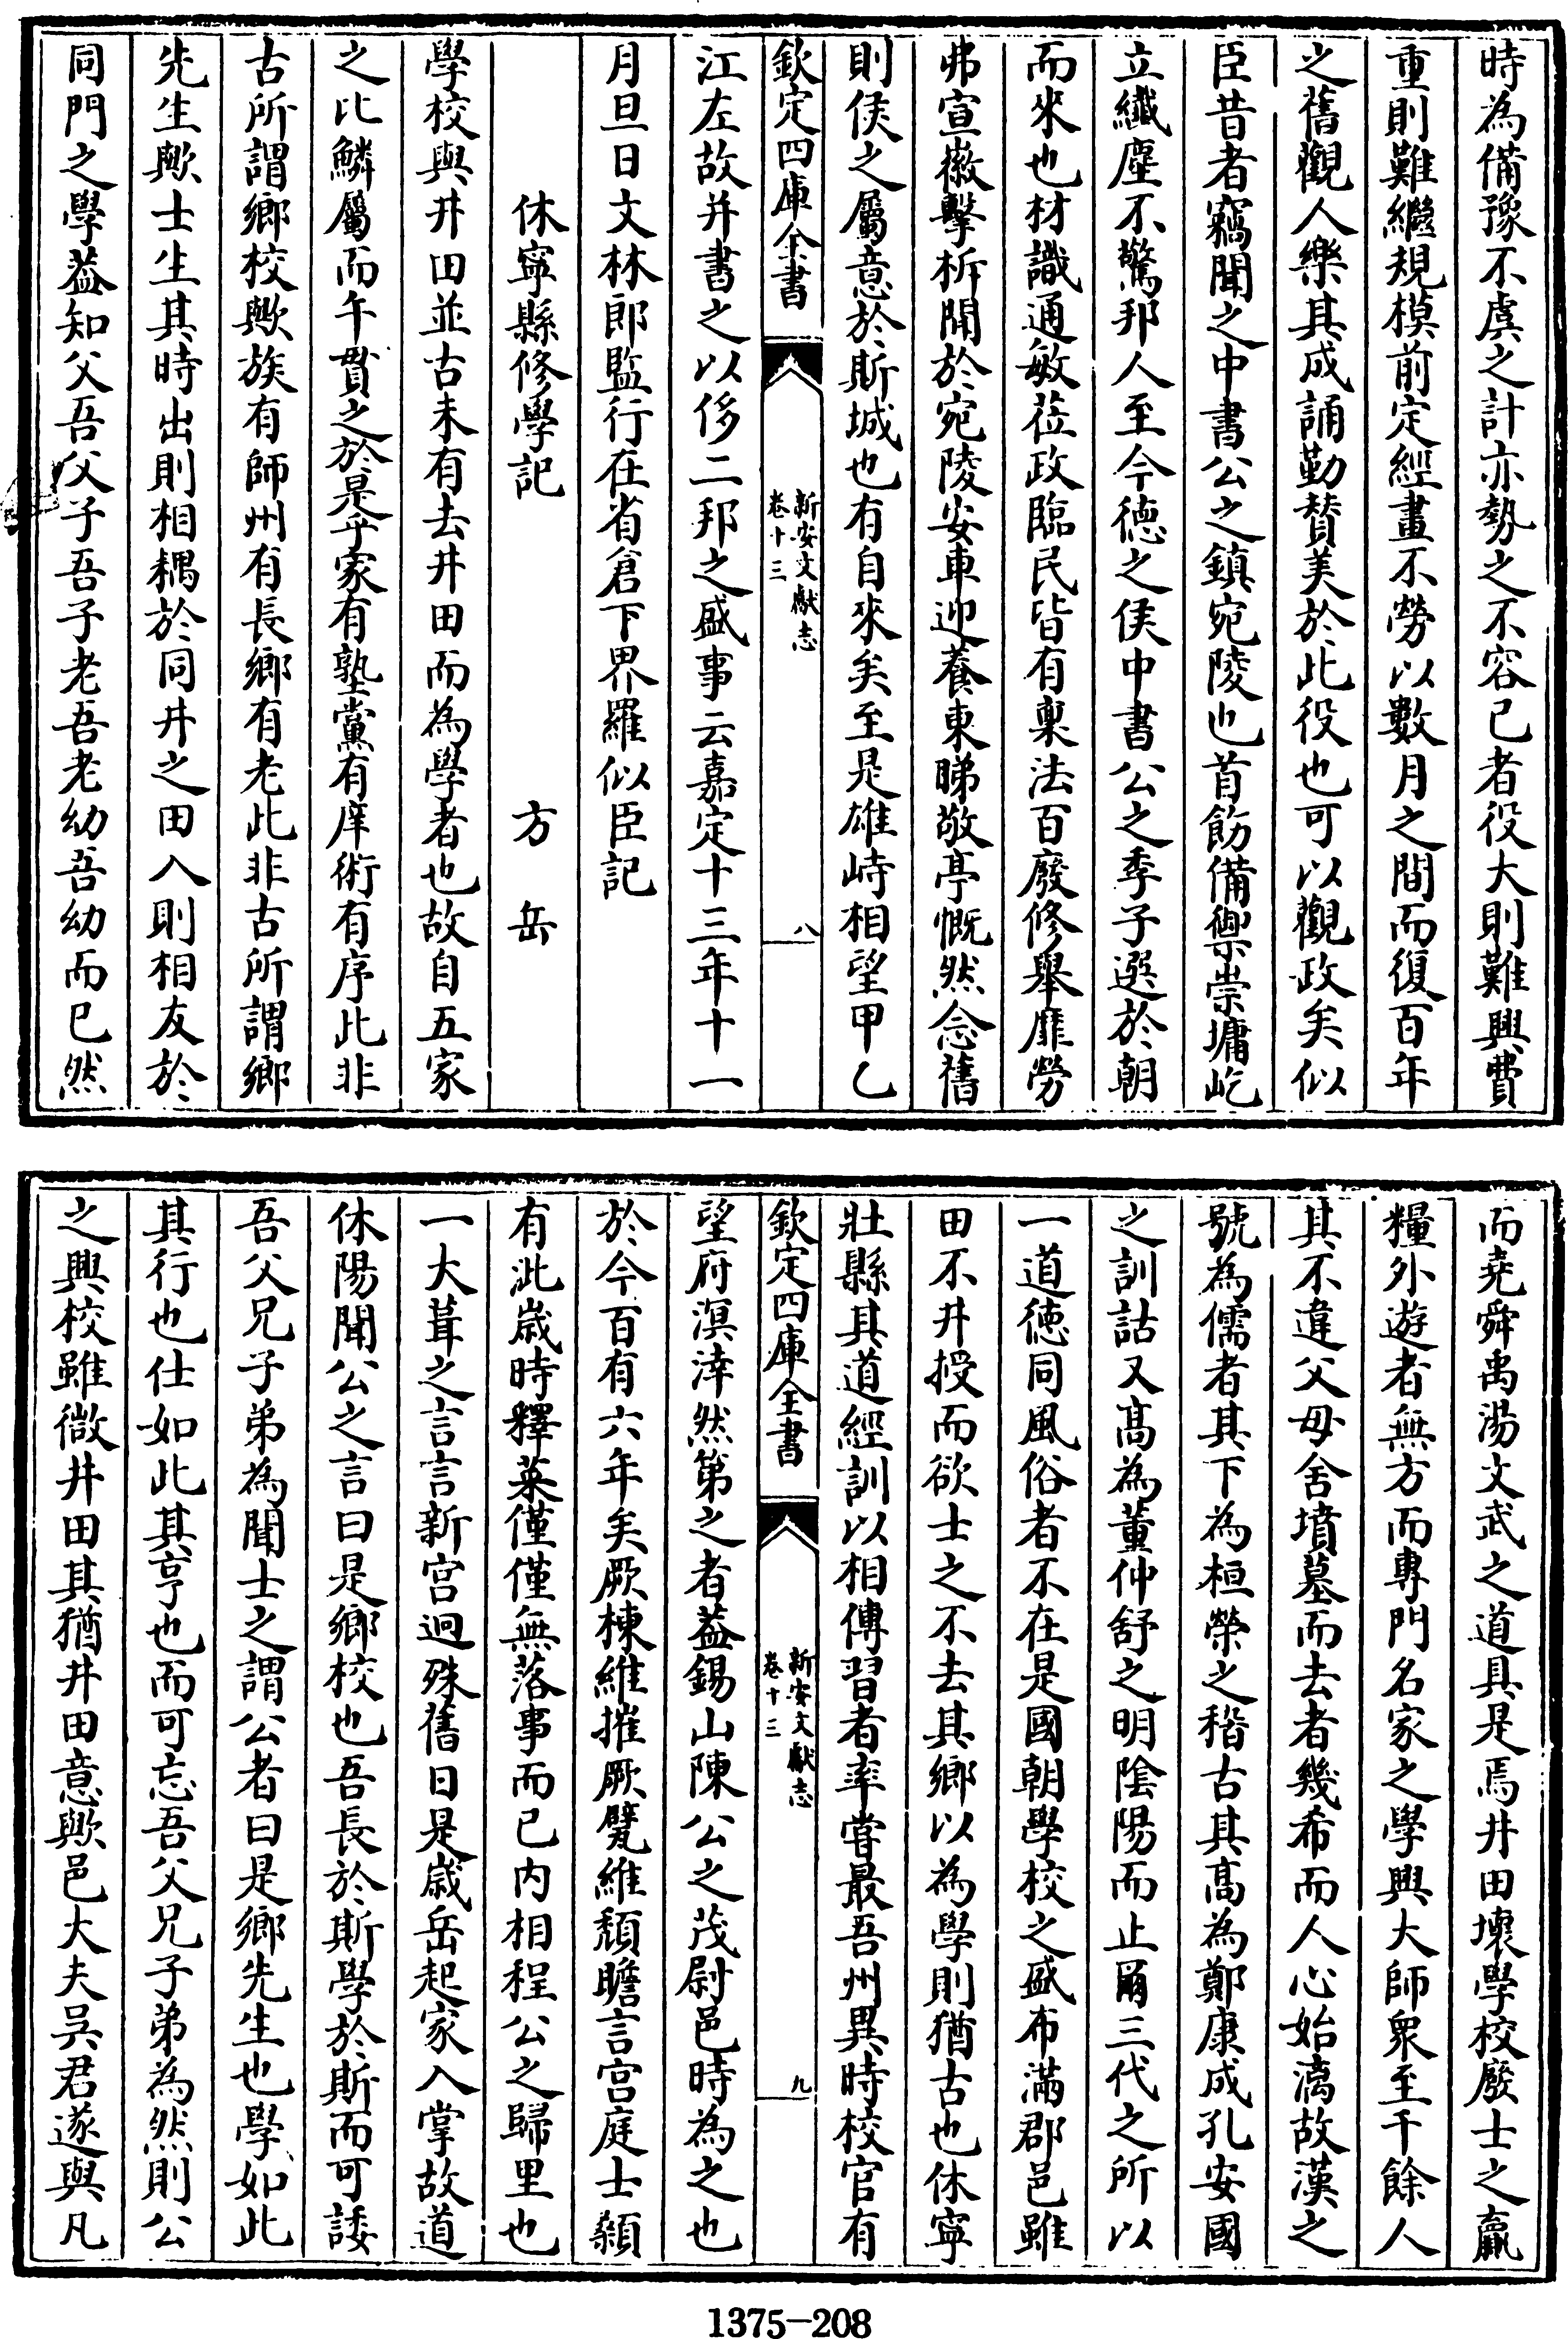 時為備豫不虞之計亦勢之不容已者役大則難興費
重則難繼規模前定經畫不勞以數月之間而復百年
之舊觀人樂其成誦勤賛美於此役也可以觀政矣似
臣昔者竊聞之中書公之鎮宛陵也首飭備禦崇墉屹
立纎塵不驚邦人至今德之侯中書公之季子選於朝
而來也材識通敏莅政臨民皆有稟法百廢修舉靡勞
弗宣徽擊柝聞於宛陵安車迎養東睇敬亭慨然念舊
則侯之屬意於斯城也有自來矣至是雄峙相望甲乙
欽定四庫全書
新安文獻志
卷十三
八
江左故并書之以侈二邦之盛事云嘉定十三年十一
月旦日文林郎監行在省倉下界羅似臣記
休寧縣修學記
方岳
學校與井田並古未有去井田而為學者也故自五家
之比鱗屬而午貫之於是乎家有塾黨有庠術有序此非
古所謂鄉校歟族有師州有長鄉有老此非古所謂鄉
先生歟士生其時出則相耦於同井之田入則相友於
同門之學葢知父吾父子吾子老吾老幼吾幼而已然
而堯舜禹湯文武之道具是焉井田壊學校廢士之羸
糧外遊者無方而專門名家之學興大師衆至千餘人
其不違父母舍墳墓而去者幾希而人心始漓故漢之
號為儒者其下為桓榮之稽古其髙為鄭康成孔安國
之訓詁又髙為董仲舒之明陰陽而止爾三代之所以
一道徳同風俗者不在是國朝學校之盛布滿郡邑雖
田不井授而欲士之不去其鄉以為學則猶古也休寧
壯縣其道經訓以相傳習者率嘗最吾州異時校官有
欽定四庫全書
新安文獻志
卷十三
九
望府溟涬然第之者葢錫山陳公之茂尉邑時為之也
於今百有六年矣厥棟維摧厥甓維頽瞻言宫庭士顙
有泚歳時釋菜僅僅無落事而已内相程公之歸里也
一大葺之言言新宫迥殊舊日是歳岳起家入掌故道
休陽聞公之言曰是鄉校也吾長於斯學於斯而可諉
吾父兄子弟為聞士之謂公者曰是鄉先生也學如此
其行也仕如此其亨也而可忘吾父兄子弟為然則公
之興校雖微井田其猶井田意歟邑大夫吳君遂與凡
1375-208